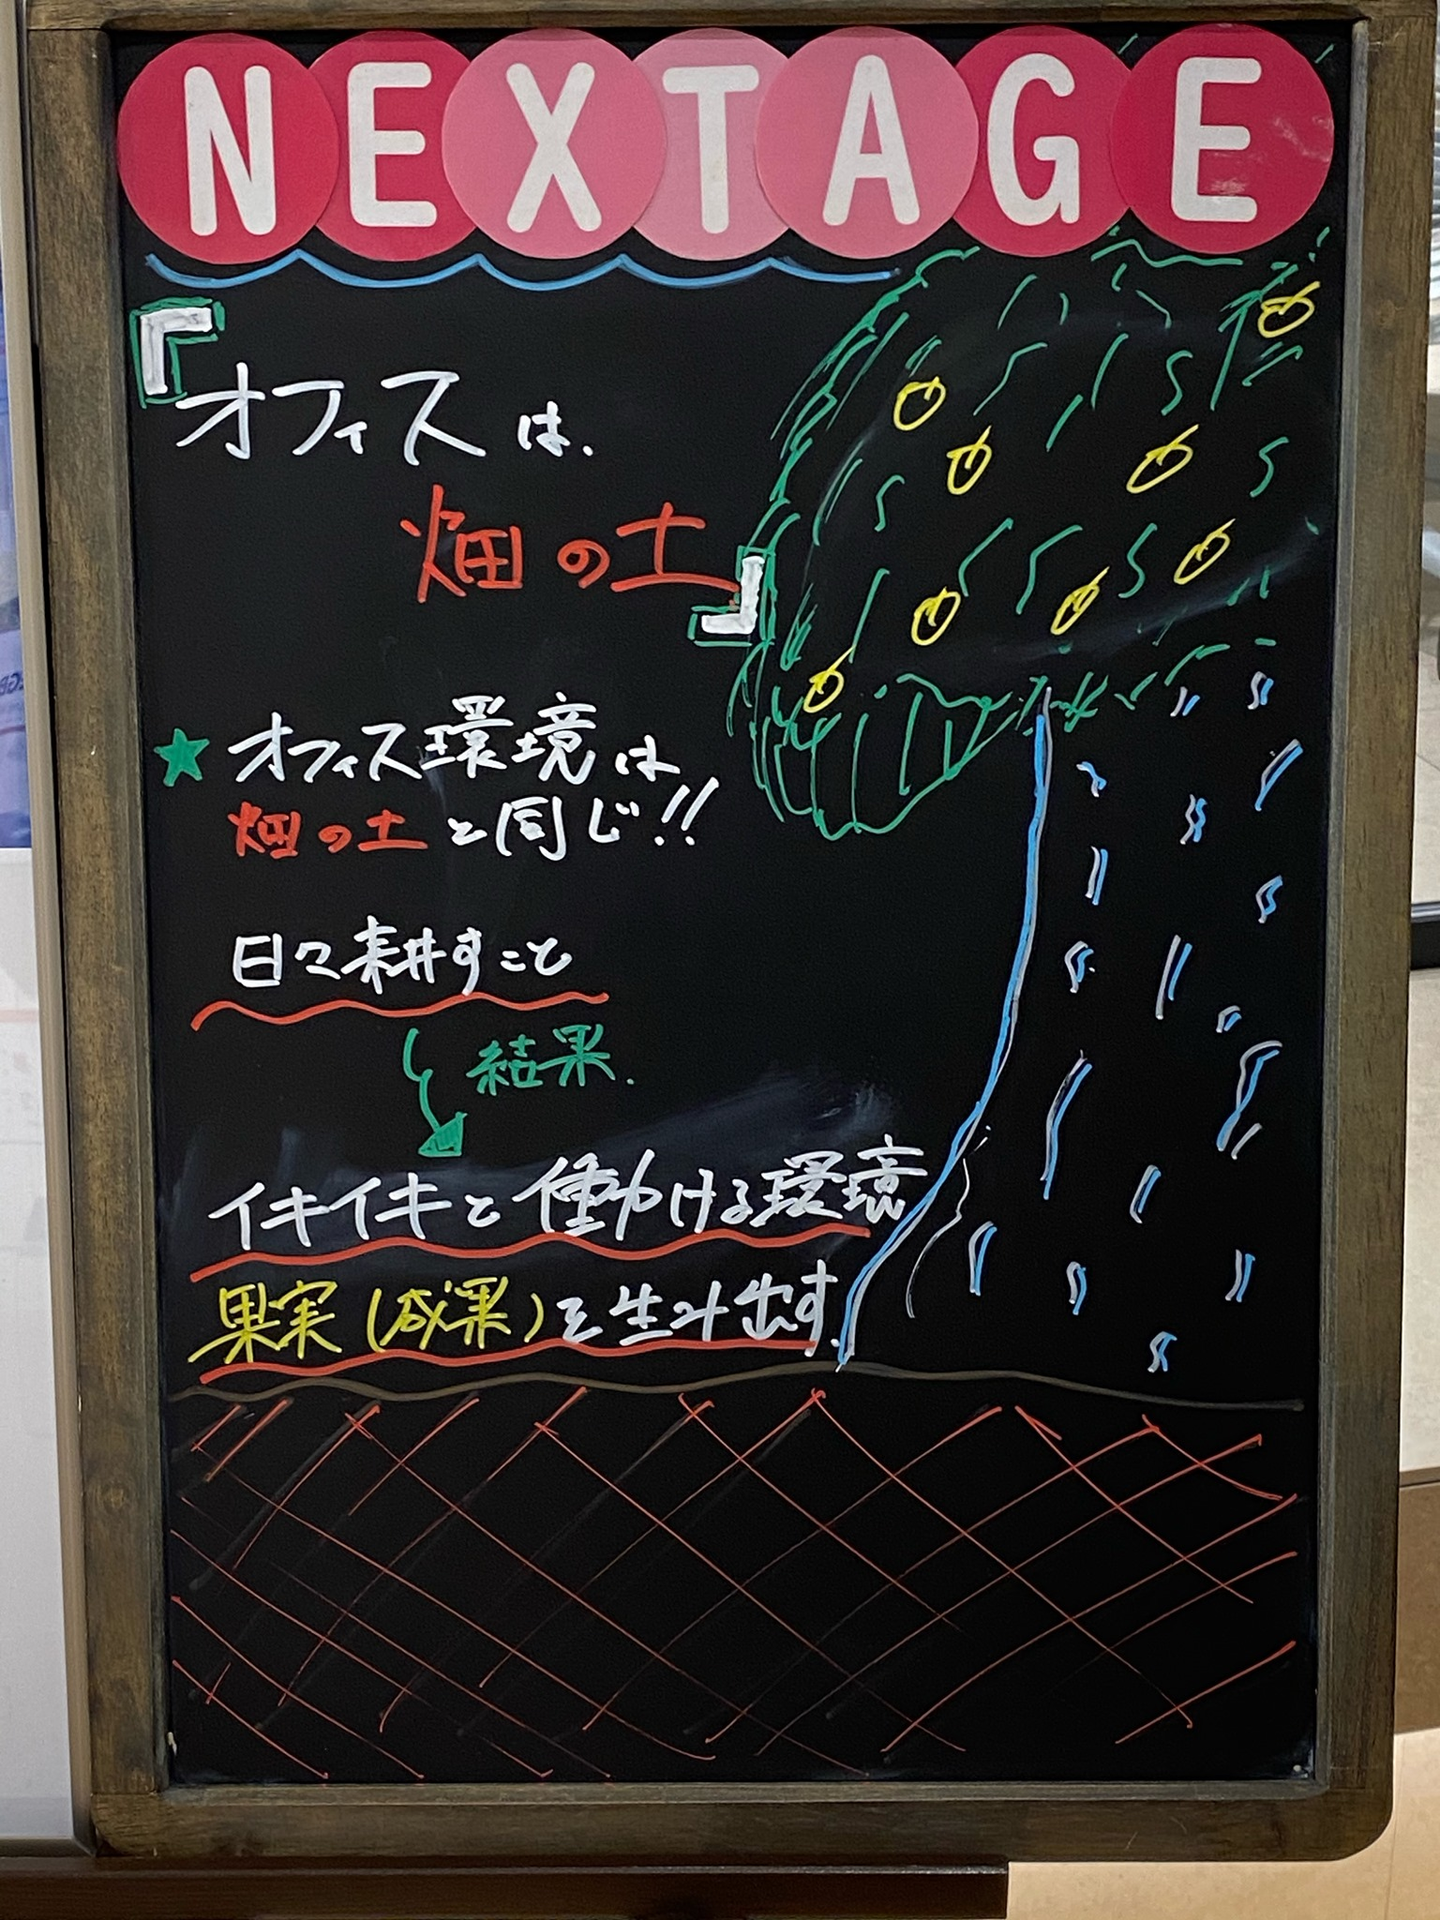 NEXTAGE
『オフィスは、
畑の土』
★オフィス環境は
畑の土と同じ!!
日々耕すこと
結果.
イキイキと働ける環境
果実(成果)を生み出す.